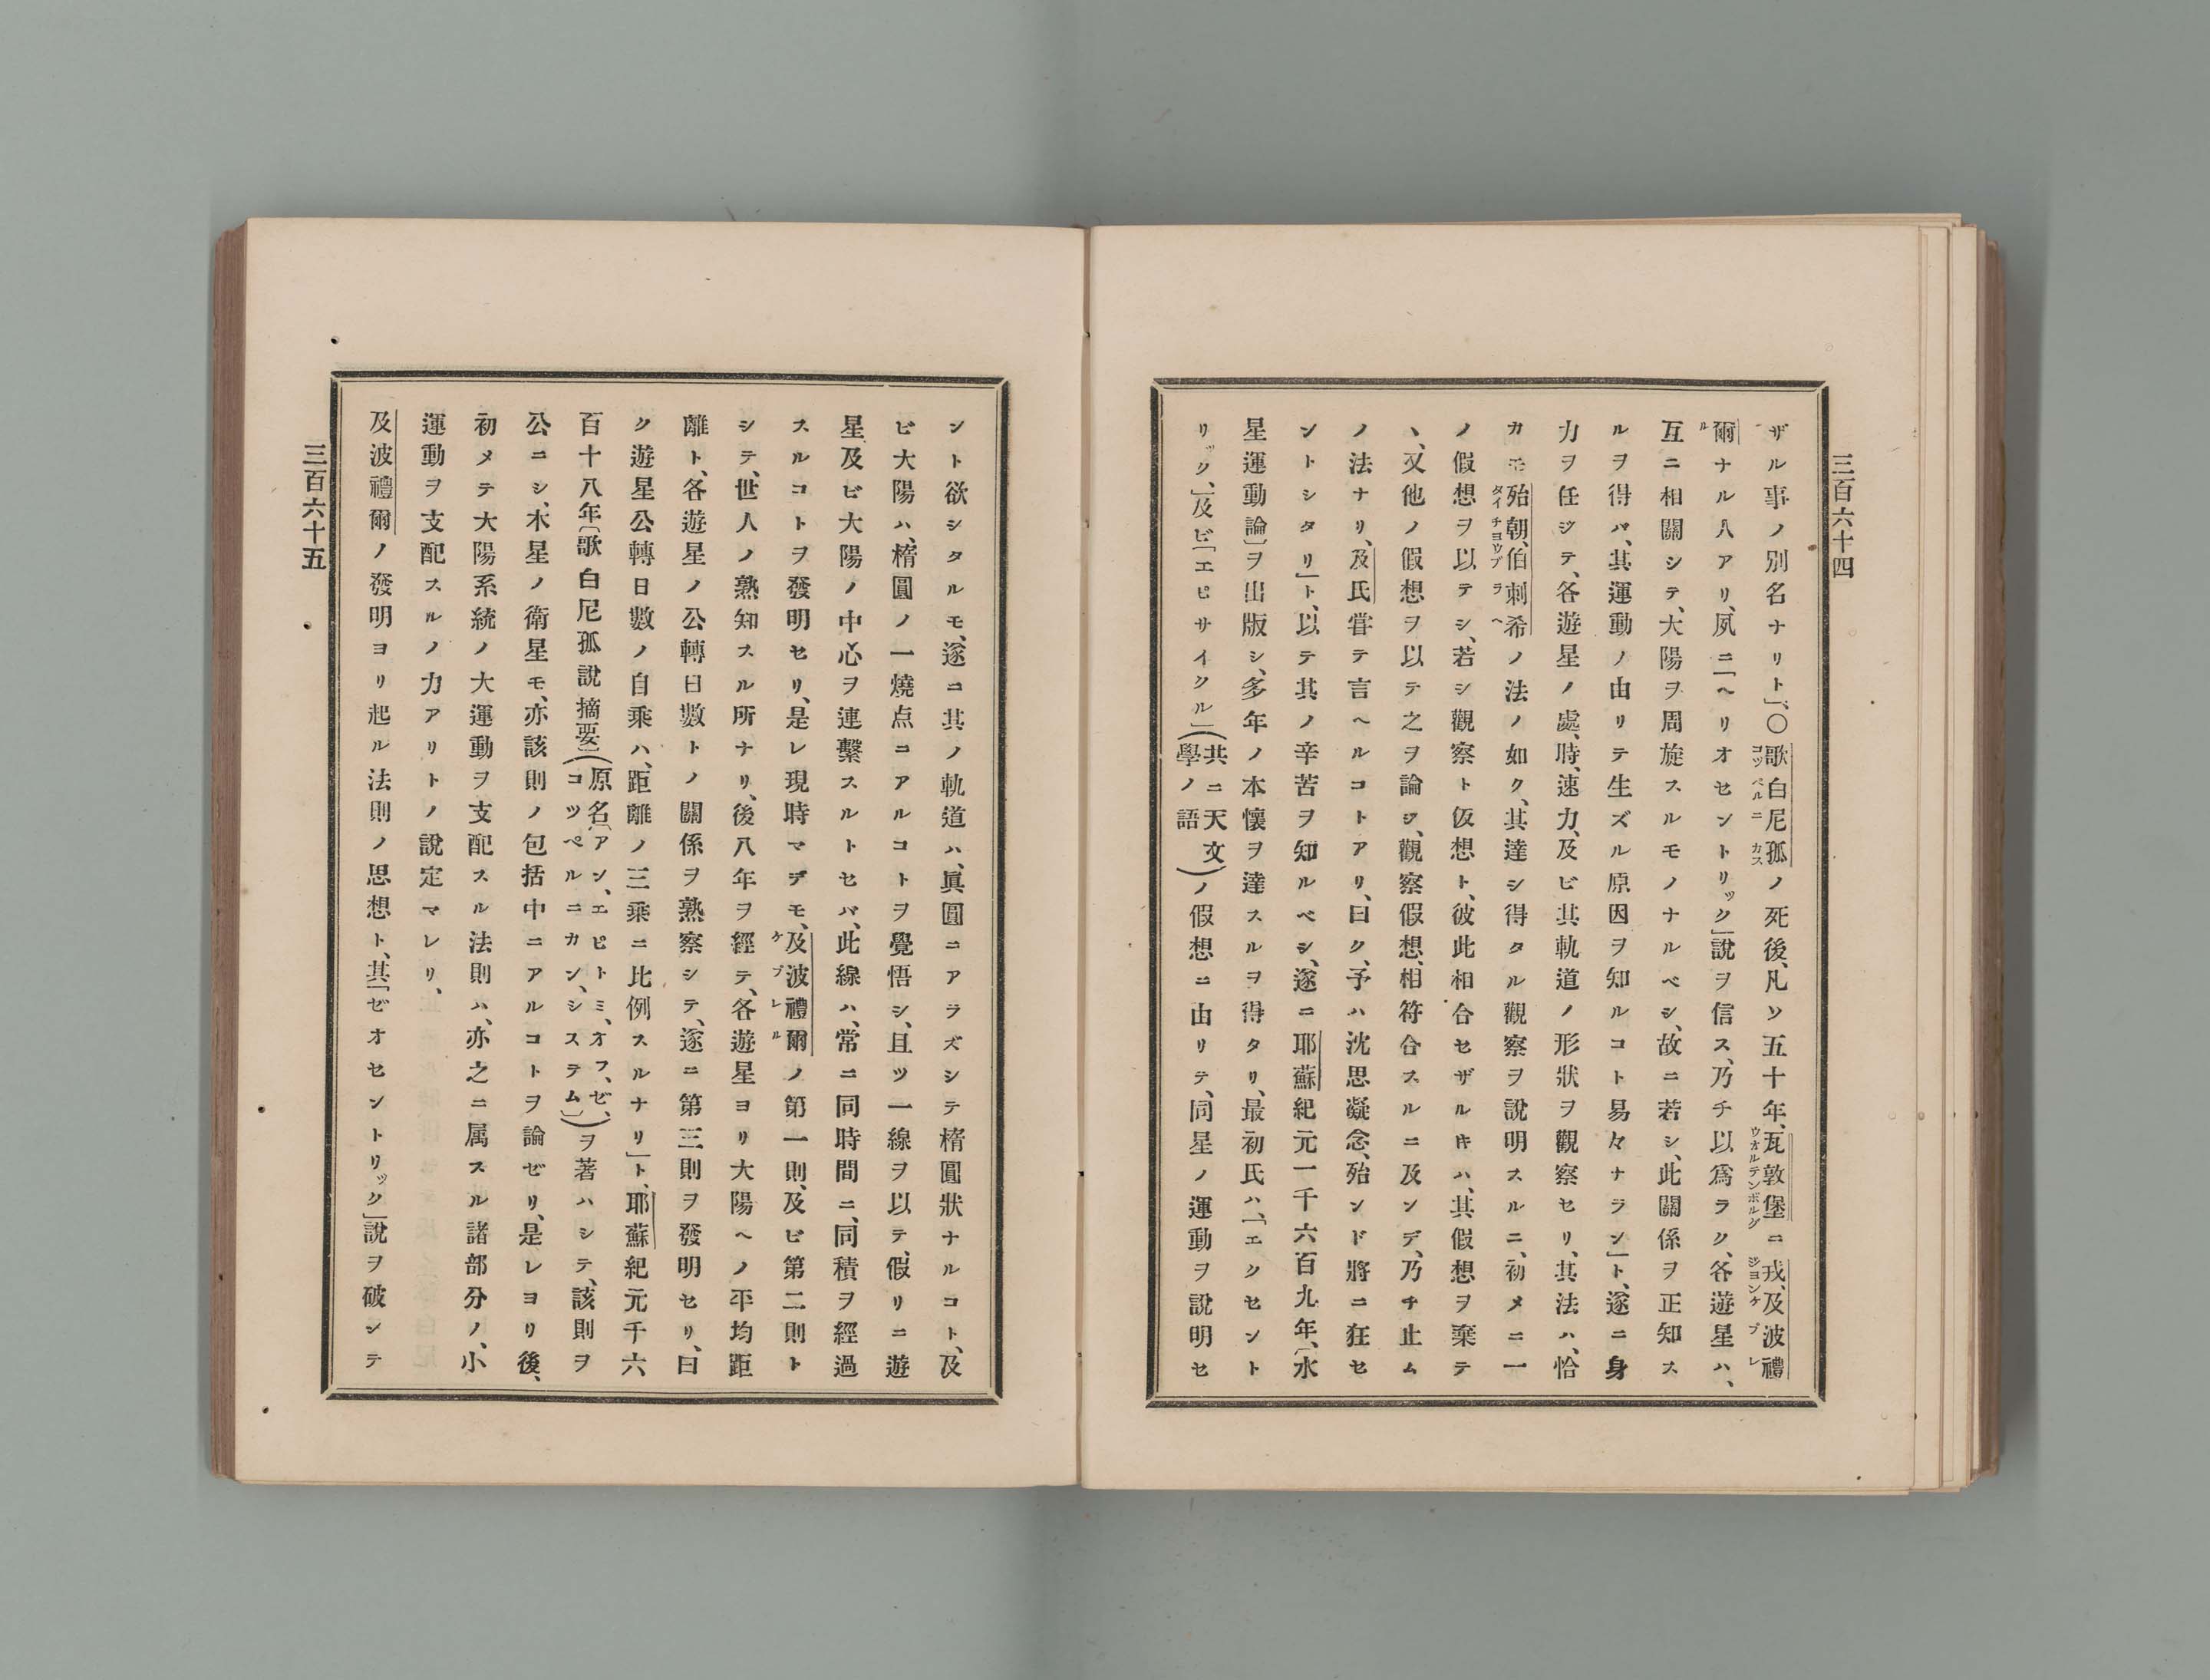 三百六十四
ザル事ノ別名ナリト」、〇歌白尼孤ノ死後、凡ソ五十年、瓦敦堡ニ戎、及波禮
コッペルニカス
ウオルテンボルグ
ジヨンケプレ
爾ナル人アリ、夙ニ「ヘリオセントリック」說ヲ信ス、乃チ以爲ラク、各遊星ハ、
ル
互ニ相關シテ、大陽ヲ周旋スルモノナルベシ、故ニ若シ、此關係ヲ正知ス
ルヲ得バ、其運動ノ由リテ生ズル原因ヲ知ルコト易々ナラン」ト、遂ニ身
力ヲ任ジテ、各遊星ノ處、時、速力、及ビ其軌道ノ形狀ヲ觀察セリ、其法ハ、恰
カモ殆朝、伯刺希ノ法ノ如ク、其達シ得タル觀察ヲ說明スルニ、初メニ一
タイチヨウブラヘ
ノ假想ヲ以テシ、若シ觀察ト仮想ト、彼此相合セザルキハ、其假想ヲ棄テ
ヽ、又他ノ假想ヲ以テ之ヲ論ジ、觀察假想、相符合スルニ及ンデ、乃チ止ム
ノ法ナリ、及氏甞テ言ヘルコトアリ、曰ク、予ハ沈思凝念、殆ンド將ニ狂セ
ントシタリ」ト、以テ其ノ辛苦ヲ知ルベシ、遂ニ耶蘇紀元一千六百九年、〔水
星運動論〕ヲ出版シ、多年ノ本懷ヲ達スルヲ得タリ、最初氏ハ、「エクセント
リック、」及ビ「エピサイクル」(共ニ天文學ノ語)ノ假想ニ由リテ、同星ノ運動ヲ說明セ
ント欲シタルモ、遂ニ其ノ軌道ハ、眞圓ニアラズシテ楕圓狀ナルコト、及
ビ大陽ハ、楕圓ノ一燒点ニアルコトヲ覺悟シ、且ツ一線ヲ以テ、假リニ遊
星、及ビ大陽ノ中心ヲ連繫スルトセバ、此線ハ、常ニ同時間ニ、同積ヲ經過
スルコトヲ發明セリ、是レ現時マデモ、及波禮爾ノ第一則、及ビ第二則ト
ケプレル
シテ、世人ノ熟知スル所ナリ、後八年ヲ經テ、各遊星ヨリ大陽ヘノ平均距
離ト、各遊星ノ公轉日數トノ關係ヲ熟察シテ、遂ニ第三則ヲ發明セリ、曰
ク遊星公轉日數ノ自乘ハ、距離ノ三乘ニ比例スルナリ」ト、耶蘇紀元千六
百十八年〔歌白尼孤說摘要〕(原名「アン、エピトミ、オフ、ゼ、コツペルニカン、システム」)ヲ著ハシテ、該則ヲ
公ニシ、木星ノ衛星モ、亦該則ノ包括中ニアルコトヲ論ゼリ、是レヨリ後、
初メテ大陽系統ノ大運動ヲ支配スル法則ハ、亦之ニ属スル諸部分ノ、小
運動ヲ支配スルノ力アリトノ說定マレリ、
及波禮爾ノ發明ヨリ起ル法則ノ思想ト、其「ゼオセントリック」說ヲ破シテ
三百六十五